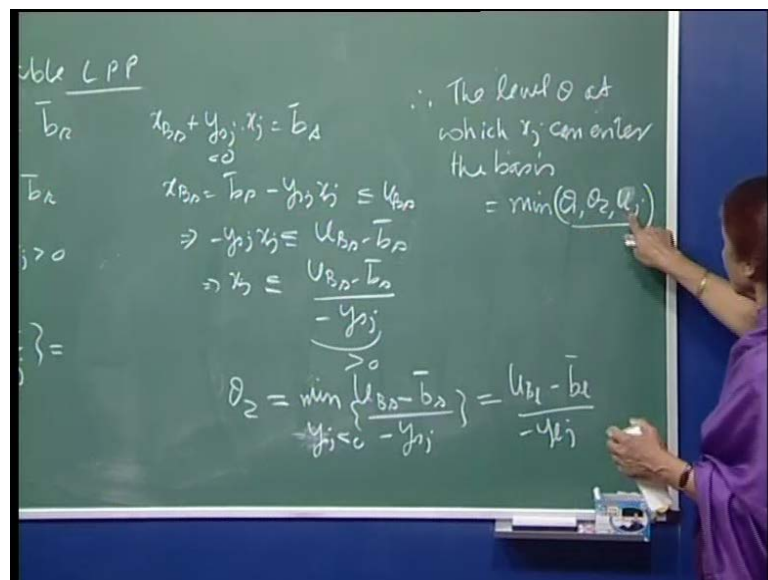 ble LPP
b̄_R
b̄_R
j > 0
} =
x_{B_s} + y_{sj} x_j = b̄_s
< 0
x_{B_s} = b̄_s - y_{sj} x_j ≤ u_{B_s}
⇒ -y_{sj} x_j ≤ u_{B_s} - b̄_s
⇒ x_j ≤ (u_{B_s} - b̄_s) / (-y_{sj})
> 0
θ_2 = min_{y_{sj} < 0} { (u_{B_s} - b̄_s) / (-y_{sj}) } = (u_{B_l} - b̄_l) / (-y_{lj})
∴ The level θ at
which x_j can enter
the basis
= min(θ_1, θ_2, u_j)